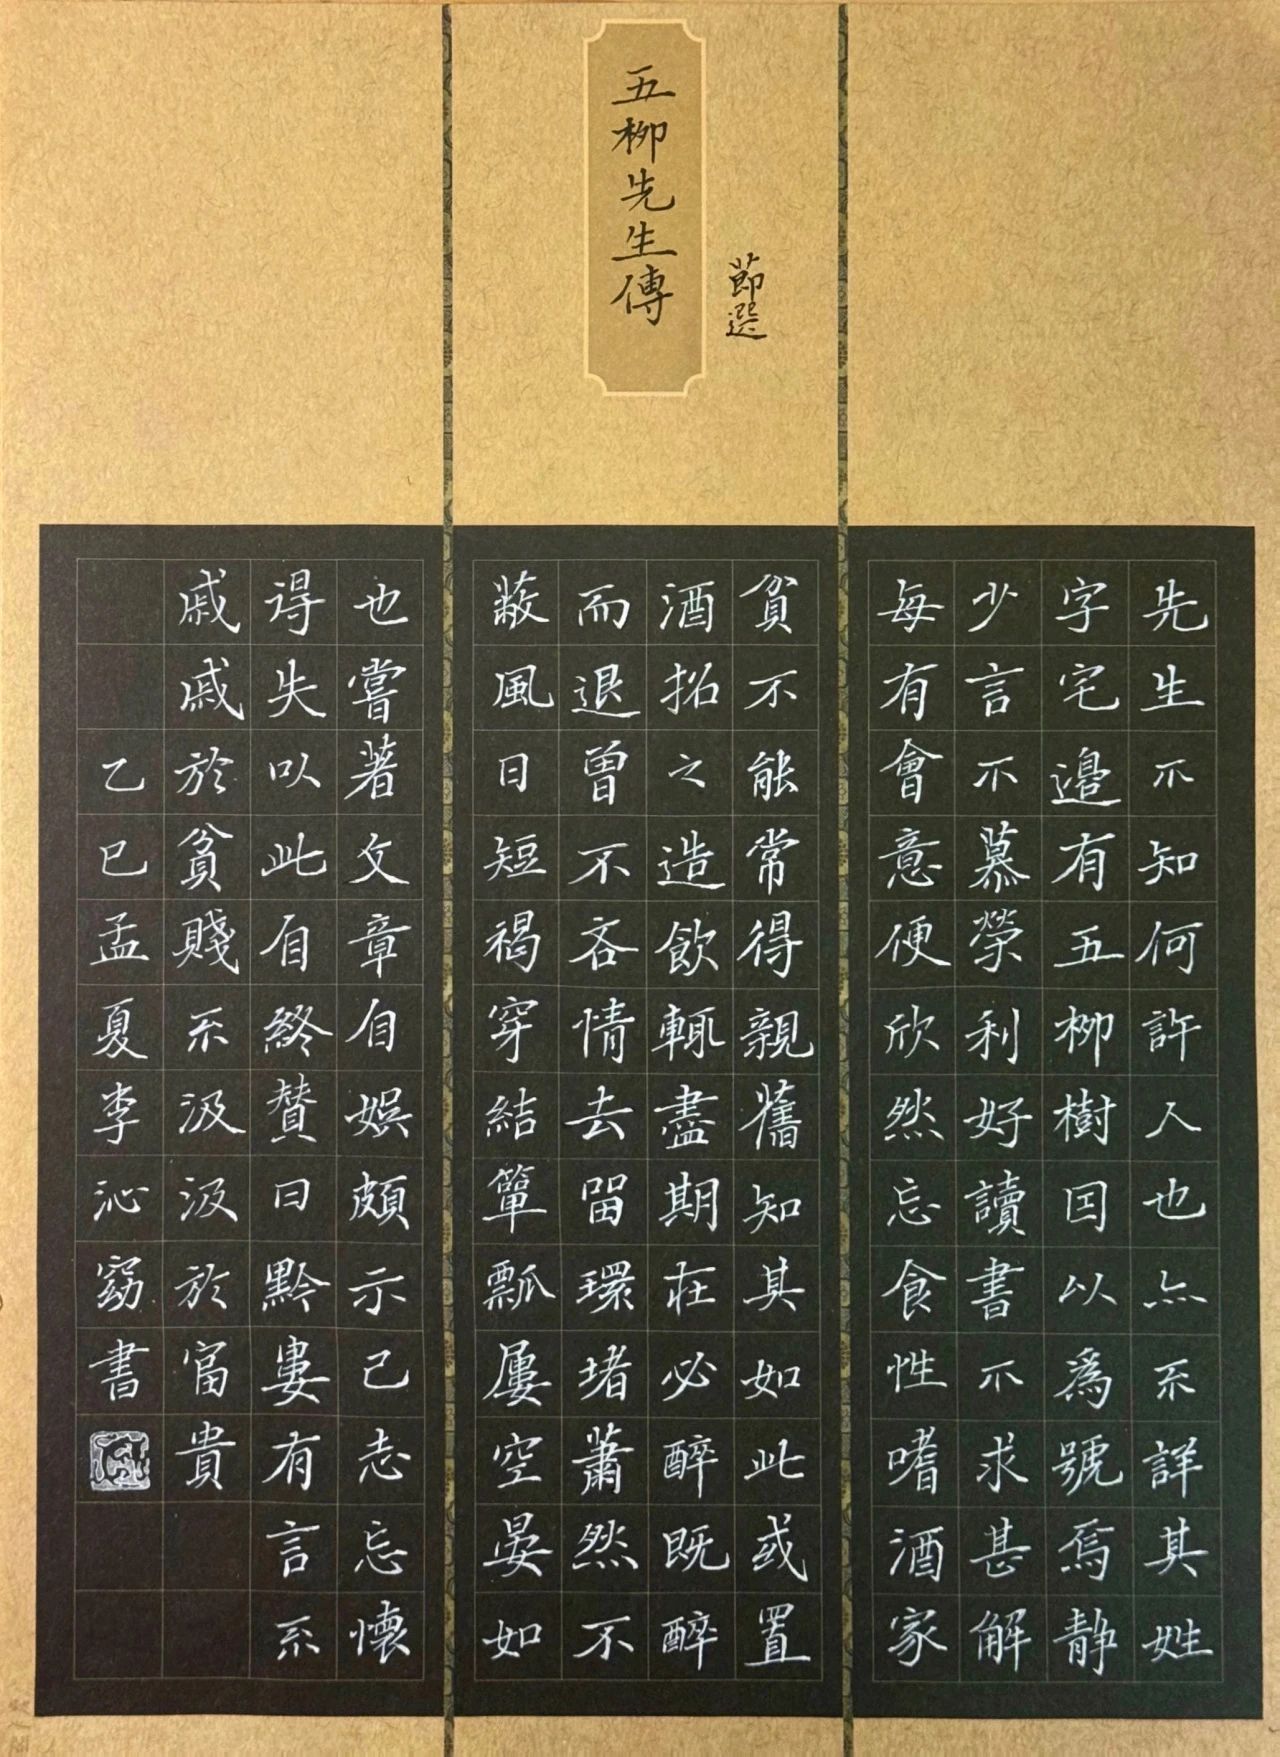 五柳先生傳
節選
先生不知何許人也亦不詳其姓
字宅邊有五柳樹因以為號焉靜
少言不慕榮利好讀書不求甚解
每有會意便欣然忘食性嗜酒家
貧不能常得親舊知其如此或置
酒招之造飲輒盡期在必醉既醉
而退曾不吝情去留環堵蕭然不
蔽風日短褐穿結簞瓢屢空晏如
也嘗著文章自娛頗示己志忘懷
得失以此自終贊曰黔婁有言不
戚戚於貧賤不汲汲於富貴
乙巳孟夏李沁窈書